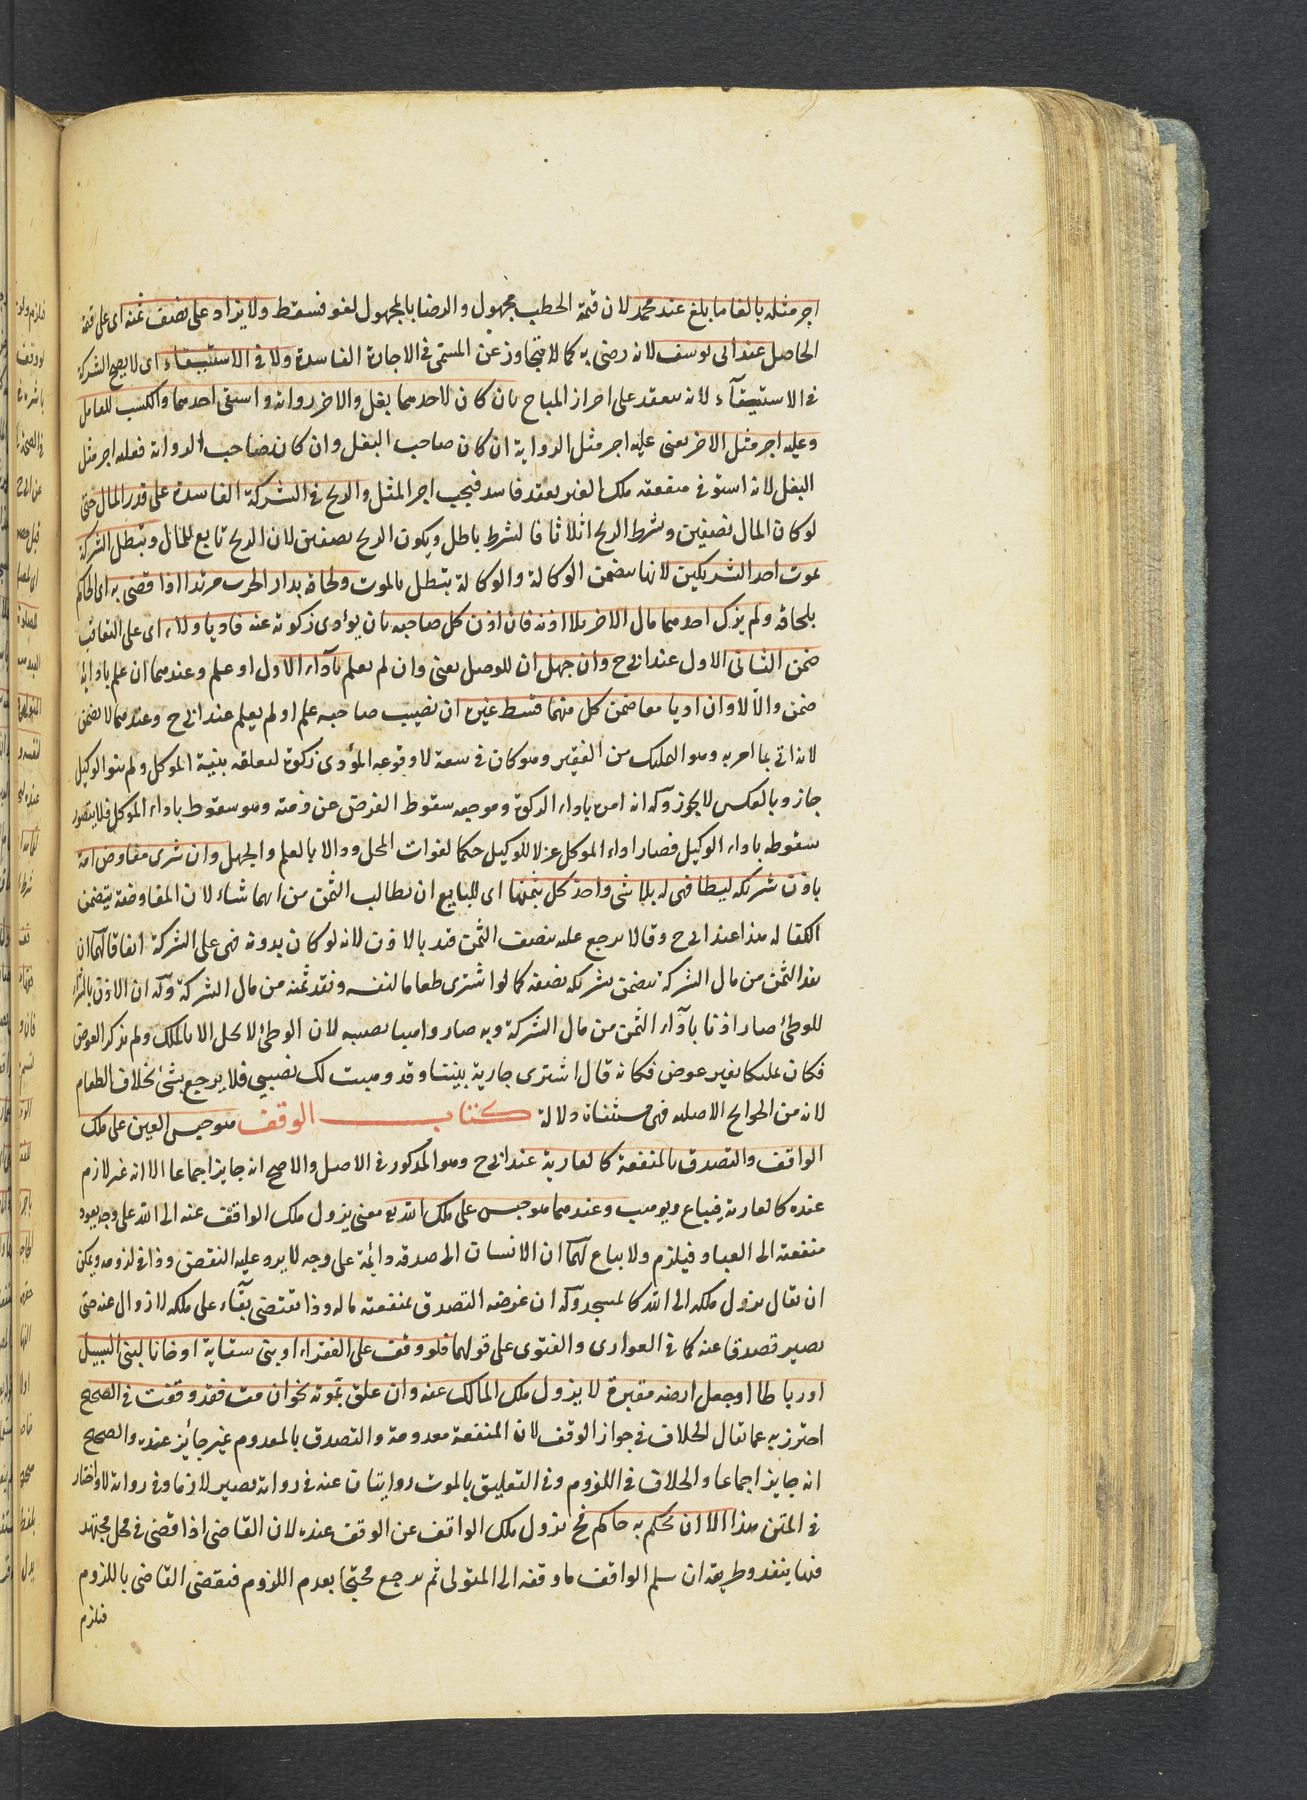 اجر مثله بالغا ما بلغ عند محمد لان قيمة الحطب مجهول والرضا بالمجهول لغو فسقط ولا يزاد على نصف ثمنه اى على قيمة
الحاصل عند ابى يوسف لانه رضى به كما لا يتجاوز عن المسمى فى الاجارة الفاسدة ولا فى الاستسقاء اى لا يصح الشركة
فى الاستسقاء لانه ينعقد على احراز المباح بان كان لاحدهما بغل والاخر رواية واستقى احدهما والكسب للعامل
وعليه اجر مثل الاخر يعنى عليه اجر مثل الرواية ان كان صاحب البغل وان كان صاحب الرواية فعليه اجر مثل
البغل لانه استوفى منفعته ملك الغير بعقد فاسد فيجب اجر المثل والربح فى الشركة الفاسدة على قدر المال حتى
لو كان المال نصفين وشرط الربح اثلاثا فالشرط باطل ويكون الربح نصفين لان الربح تابع للمال وتبطل الشركة
بموت احد الشريكين لانها يتضمن الوكالة والوكالة يبطل بالموت ولحاقه بدار الحرب مرتدا اذا قضى به اى الحاكم
بلحاقه ولم يزك احدهما مال الاخر بلا اذنه فان اذن كل صاحبه بان يؤدى زكوته عنه فاديا ولاء اى على التعاقب
ضمن الثانى الاول عند ابى ح وان جهل ان للوصل يعنى وان لم يعلم باداء الاول او علم وعندهما ان علم بادائه
ضمن والا لا وان اديا معا ضمن كل منهما قسط غيره ان نصيب صاحبه علم او لم يعلم عند ابى ح وعندهما لا يضمن
لانه اتى بما امر به وهو التمليك من الفقير وهو كان فى سعة لا وقوعه المؤدى زكوة لتعلقه بنية الموكل ولم ينو الوكيل
جاز وبالعكس لا يجوز وله انه امره باداء الزكوة وموجبه سقوط الفرض عن ذمته وهو سقوط باداء الموكل فلا يتصور
سقوطه باداء الوكيل فصار اداء الموكل عزلا للوكيل حكما لفوات المحل ودا لا بالعلم والجهل وان شرى مفاوض امة
باذن شريكه ليطا فهى له بلا شى واخذ كل بثمنها اى للبايع ان يطالب الثمن من ايهما شاء لان المفاوضة يتضمن
الكفالة هذا عند ابى ح وقالا يرجع عليه بنصف الثمن قيد بالاذن لانه لو كان بدونه فهى على الشركة اتفاقا لهما ان
نقد الثمن من مال الشركة يتضمن شريكه نصفه كما لو اشترى طعاما لنفسه ونقد ثمنه من مال الشركة وله ان الاذن بالشراء
للوطئ صار اذنا باداء الثمن من مال الشركة وبه صار واهبا نصيبه لان الوطئ لا يحل الا بالملك ولم يذكر العوض
فكان تمليكا بغير عوض فكانه قال اشترى جارية بيننا وقد وهبت لك نصيبى فلا يرجع بشئ بخلاف الطعام
لانه من الحوايج الاصلية فهى مستثناة دلالة كتاب الوقف هو حبس العين على ملك
الواقف والتصدق بالمنفعة كالعارية عند ابى ح وهو المذكور فى الاصل والاصح انه جايز اجماعا الا انه غير لازم
عنده كالعارية فيباع ويوهب وعندهما هو حبس على ملك الله تع معنى يزول ملك الواقف عنه الى الله على وجه يعود
منفعته الى العباد فيلزم ولا يباع لهما ان الانسان الى صدقة دائمة على وجه لا يرد عليه النقض وذا فى لزومه ويمكن
ان يقال يزول ملكه الى الله كالمسجد وله ان غرضه التصدق بمنفعته ماله وذا يقتضى بقاء على ملكه لا زوال عنه حتى
يصير تصدقا عنه كما فى العوارى والفتوى على قولهما فلو وقف على الفقراء او بنى سقاية او خانا لبنى السبيل
او رباطا او جعل ارضه مقبرة لا يزول ملك المالك عنه وان علق بموته نحو ان مت فقد وقفت فى الصحيح
احترز به عما يقال الخلاف فى جواز الوقف لان المنفعة معدومة والتصدق بالمعدوم غير جائز عنده والصحيح
انه جايز اجماعا والخلاف فى اللزوم وفى التعليق بالموت روايتان عنه فى رواية يصير لازما وفى رواية لا واختار
فى المتن هذا الا ان يحكم به حاكم فح يزول ملك الواقف عن الوقف عنده لان القاضى اذا قضى فى محل مجتهد
فيها ينفذ وطريقه ان سلم الواقف ما وقفه الى المتولى ثم يرجع محتجا بعدم اللزوم فيقضى القاضى باللزوم
فيلزم